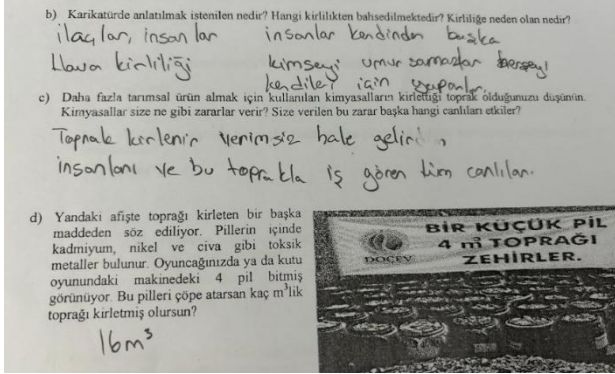 b) Karikatürde anlatılmak istenilen nedir? Hangi kirlilikten bahsedilmektedir? Kirliliğe neden olan nedir?
ilaçlar, insanlar insanlar kendinden başka
Hava kirliliği kimseyi umursamazlar herşeyi
kendileri için yaparlar.
c) Daha fazla tarımsal ürün almak için kullanılan kimyasalların kirlettiği toprak olduğunuzu düşünün.
Kimyasallar size ne gibi zararlar verir? Size verilen bu zarar başka hangi canlıları etkiler?
Toprak kirlenir verimsiz hale gelir
insanları ve bu toprakla iş gören tüm canlıları.
d) Yandaki afişte toprağı kirleten bir başka
maddeden söz ediliyor. Pillerin içinde
kadmiyum, nikel ve civa gibi toksik
metaller bulunur. Oyuncağınızda ya da kutu
oyunundaki makinedeki 4 pil bitmiş
görünüyor. Bu pilleri çöpe atarsan kaç m³lik
toprağı kirletmiş olursun?
16m³
BİR KÜÇÜK PİL
4 m³ TOPRAĞI
ZEHİRLER.
DOÇEV